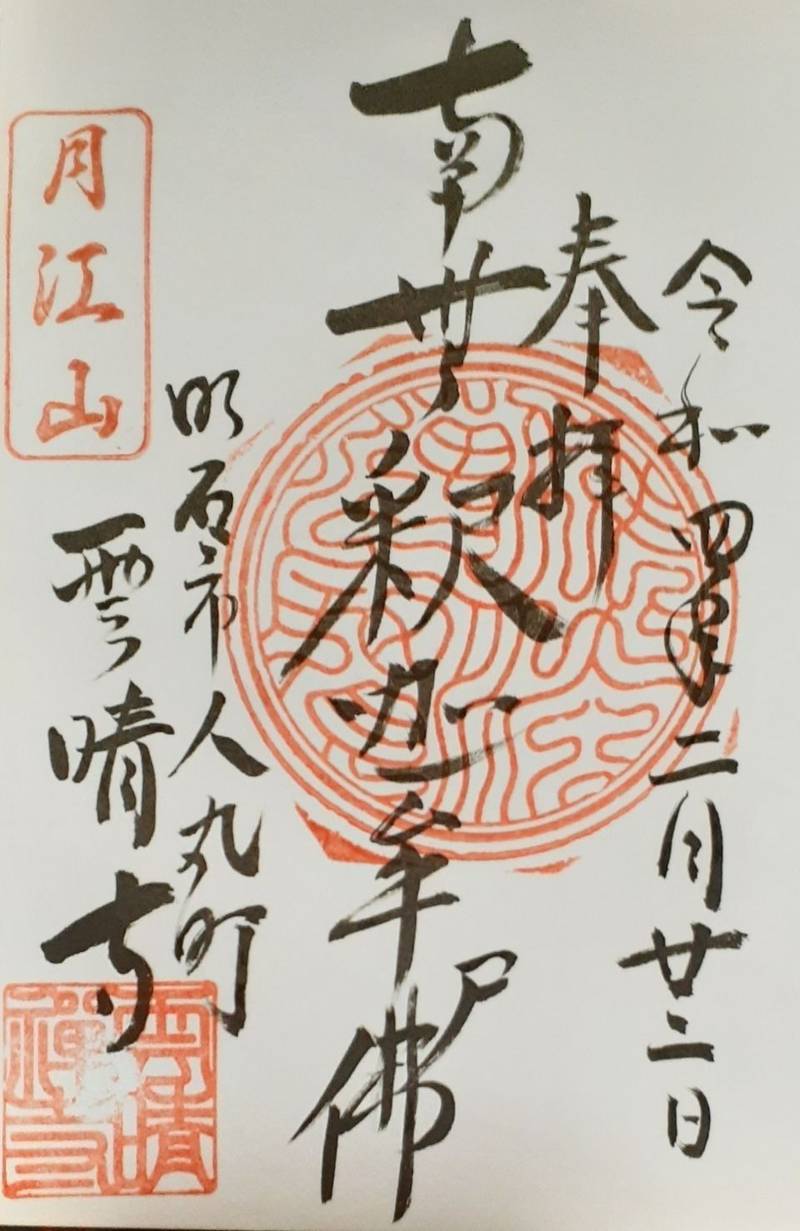 令和四年二月廿二日
奉拝
南無釈迦牟尸佛
明石市人丸町
雲晴寺
月江山
雲晴
禅寺